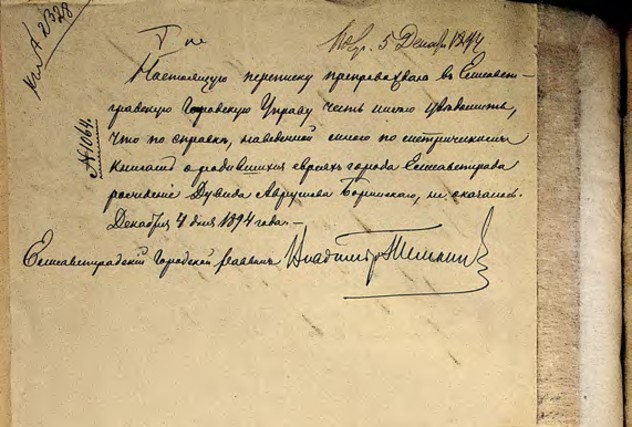 К № 2328
5 Декабря 1894
Настоящую переписку препровождая въ Елисавет-
градскую Городскую Управу честь имѣю увѣдомить,
что по справкѣ, наведенной мною по метрическимъ
№ 1064.
книгамъ о родившихся евреяхъ города Елисаветграда
рожденіе Дувида Аврумова не оказалось.
Декабря 4 дня 1894 года.—
Елисаветградскій Городской раввинъ Владимір Темкин